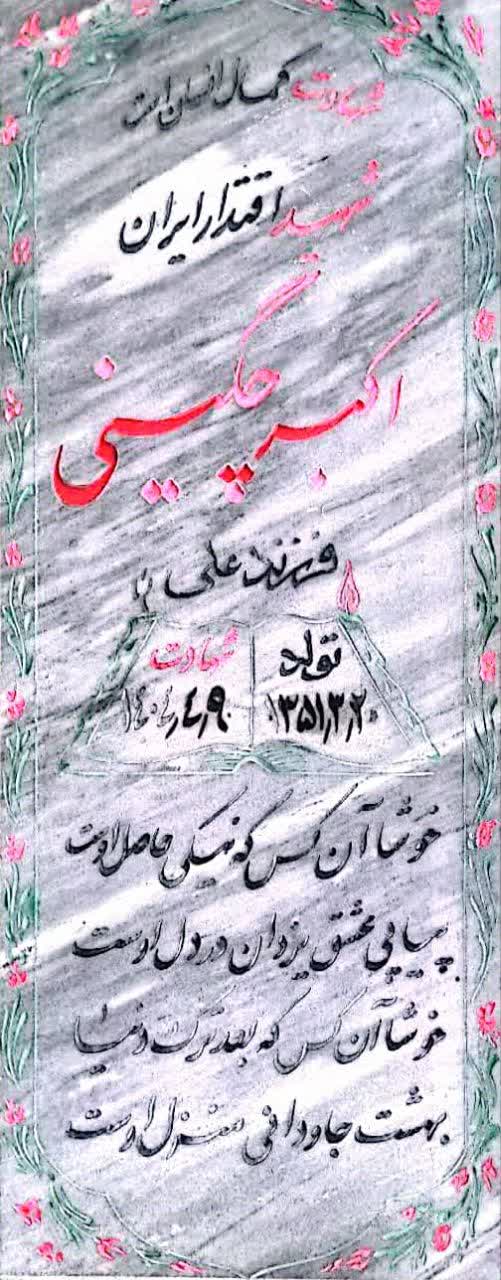 شهادت کمال انسان است
شهید اقتدار ایران
اکبر چگینی
فرزند علی
تولد
۱۳۵۱٫۳٫۲۰
شهادت
۱۴۰۴٫۴٫۹
خوشا آن کس که نیکی حاصل اوست
پیاپی عشق یزدان در دل اوست
خوشا آن کس که بعد ترک دنیا
بهشت جاودانی منزل اوست